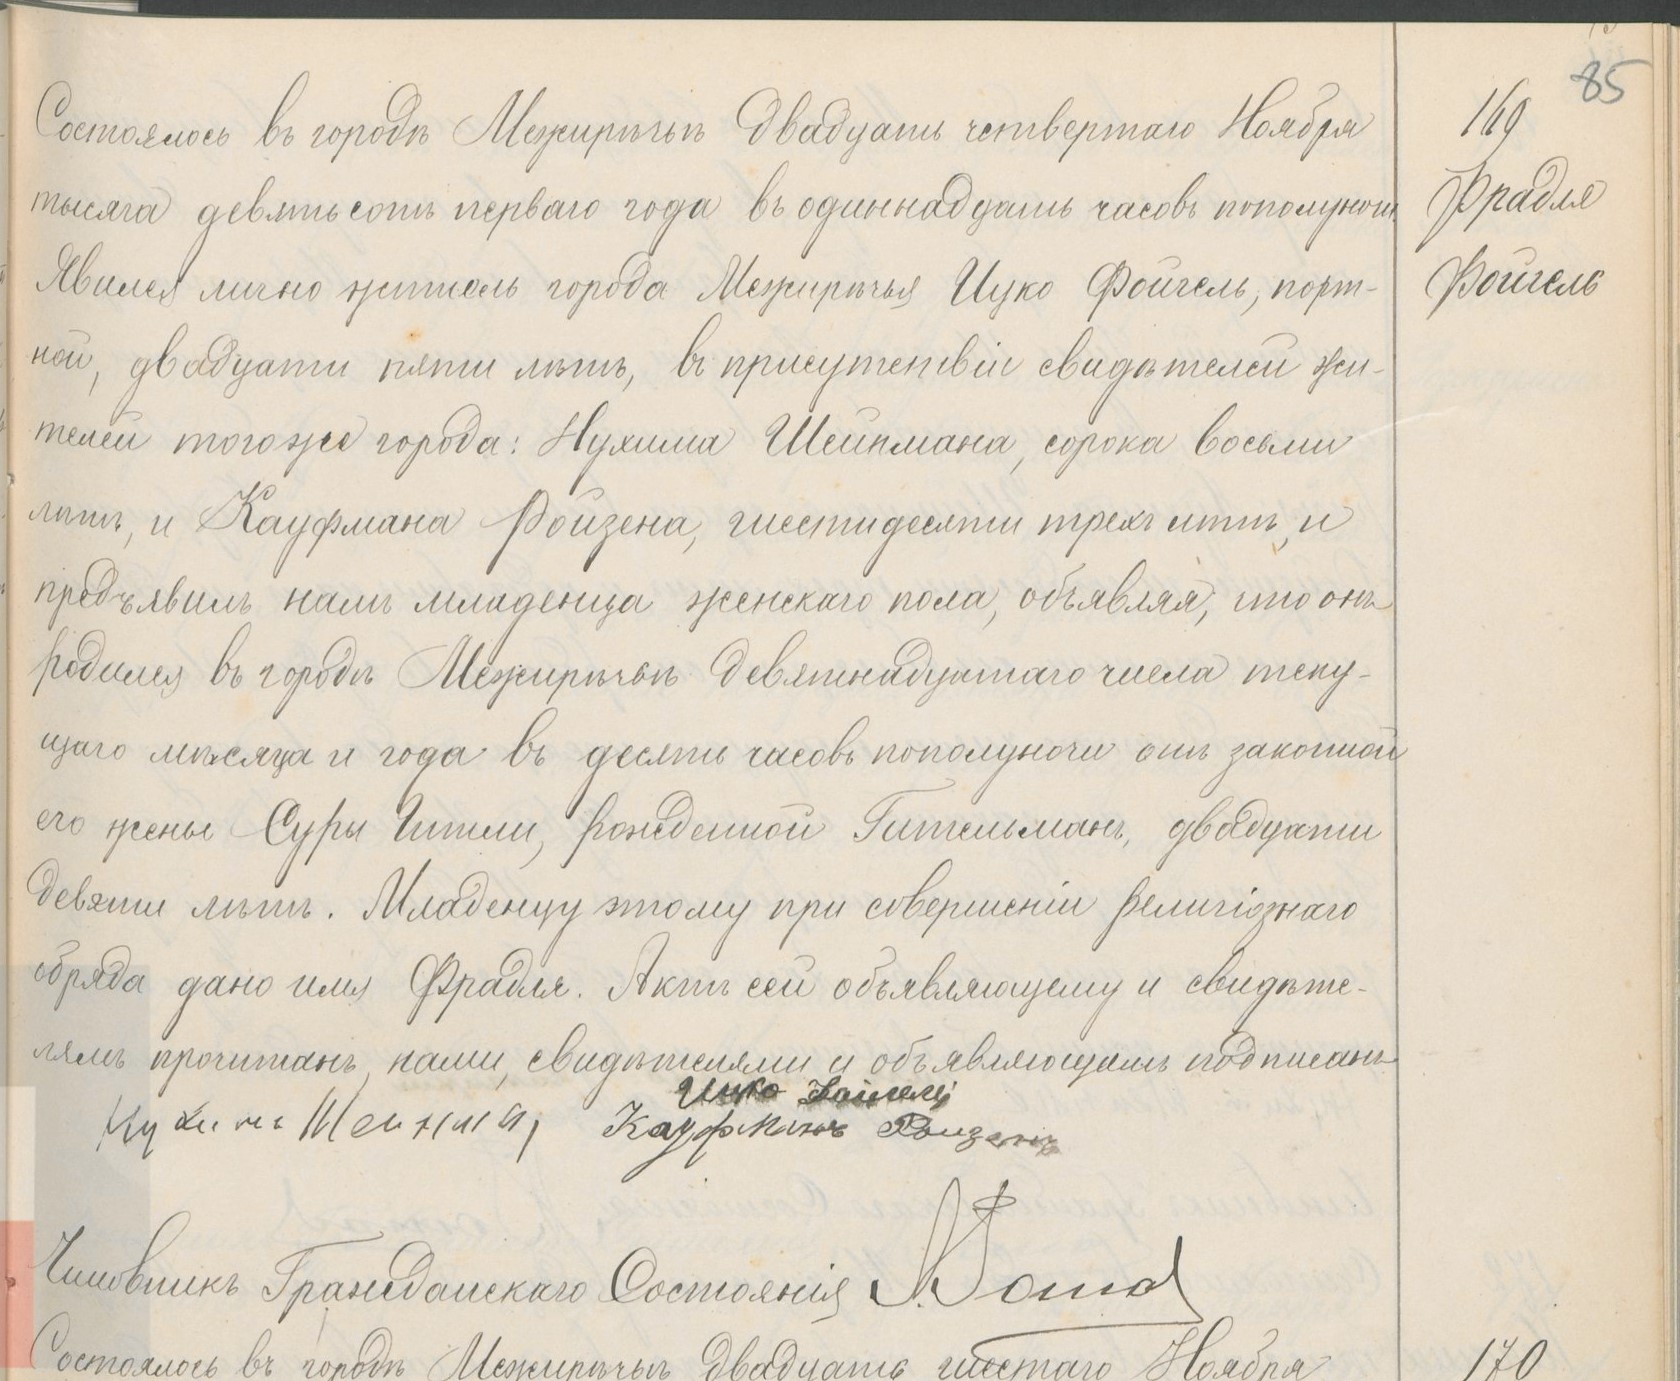 85
Состоялось въ городѣ Межирѣчьѣ двадцать четвертаго Ноября
169
тысяча девятьсотъ перваго года въ одиннадцать часовъ пополуночи
Фрадля
Явился лично житель города Межирѣчья Ицко Фойгель, порт-
Фойгель
ной, двадцати пяти лѣтъ, въ присутствіи свидѣтелей жи-
телей того же города: Нухима Шейнмана, сорока восьми
лѣтъ, и Кауфмана Ройзена, шестидесяти трехъ лѣтъ, и
предъявилъ намъ младенца женскаго пола, объявляя, что онъ
родился въ городѣ Межирѣчьѣ девятнадцатаго числа теку-
щаго мѣсяца и года въ десять часовъ пополуночи отъ законной
его жены Суры Ители, рожденной Гительманъ, двадцати
девяти лѣтъ. Младенцу этому при совершеніи религіознаго
обряда дано имя Фрадля. Актъ сей объявляющему и свидѣте-
лямъ прочитанъ, нами, свидѣтелями и объявляющимъ подписанъ
Ицко
Нухимъ Кауфманъ Ройзенъ
Чиновникъ Гражданскаго Состоянія
Состоялось въ городѣ Межирѣчьѣ двадцать шестаго Ноября
170